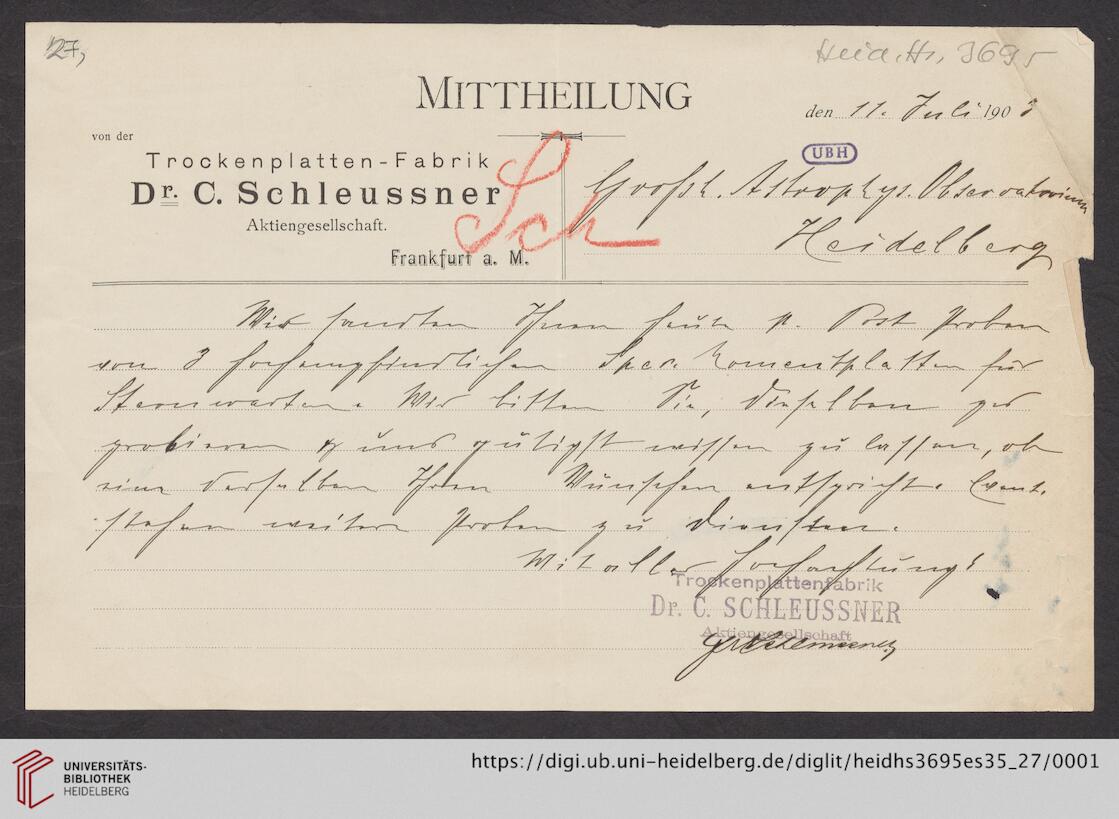 27,
Heid. Hs. 3695
MITTHEILUNG
den 11. Juli 1903
von der
Trockenplatten-Fabrik
Dr. C. Schleussner
Aktiengesellschaft.
Frankfurt a. M.
UBH
Sch
Großh. Astrophys. Observatorium
Heidelberg
Wir sandten Ihnen heute p. Post Proben
von 3 hochempfindlichen Spec. Momentplatten für
Sternwarten. Wir bitten Sie, dieselben zu
probieren & uns gütigst wissen zu lassen, ob
eine derselben Ihren Wünschen entspricht. Event.
stehen weitere Proben zu Diensten.
Mit aller Hochachtung!
Trockenplattenfabrik
Dr. C. SCHLEUSSNER
Aktiengesellschaft
UNIVERSITÄTS-
BIBLIOTHEK
HEIDELBERG
https://digi.ub.uni-heidelberg.de/diglit/heidhs3695es35_27/0001